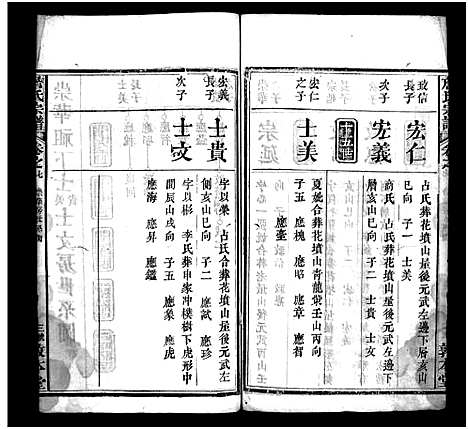 政信
長子
宏仁
占氏葬花墳山屋後元武左邊下厝亥山
巳向 子一 士美
次子
宏義
商氏 葬花墳山屋後元武左邊下
厝亥山巳向 子二 士貴 士文
宏仁
長子
士美
夏氏合葬花墳山青龍袋壬山丙向
子五 應槐 應昭 應章 應智
應臺
宏義
長子
士貴
字以榮 占氏合葬花墳山屋後元武左
側亥山巳向 子二 應試 應珍
次子
士文
字以彬 李氏葬申家冲樸樹下虎形中
間辰山戌向 子五 應象 應虎
應海 應昇 應鑑
敦本堂